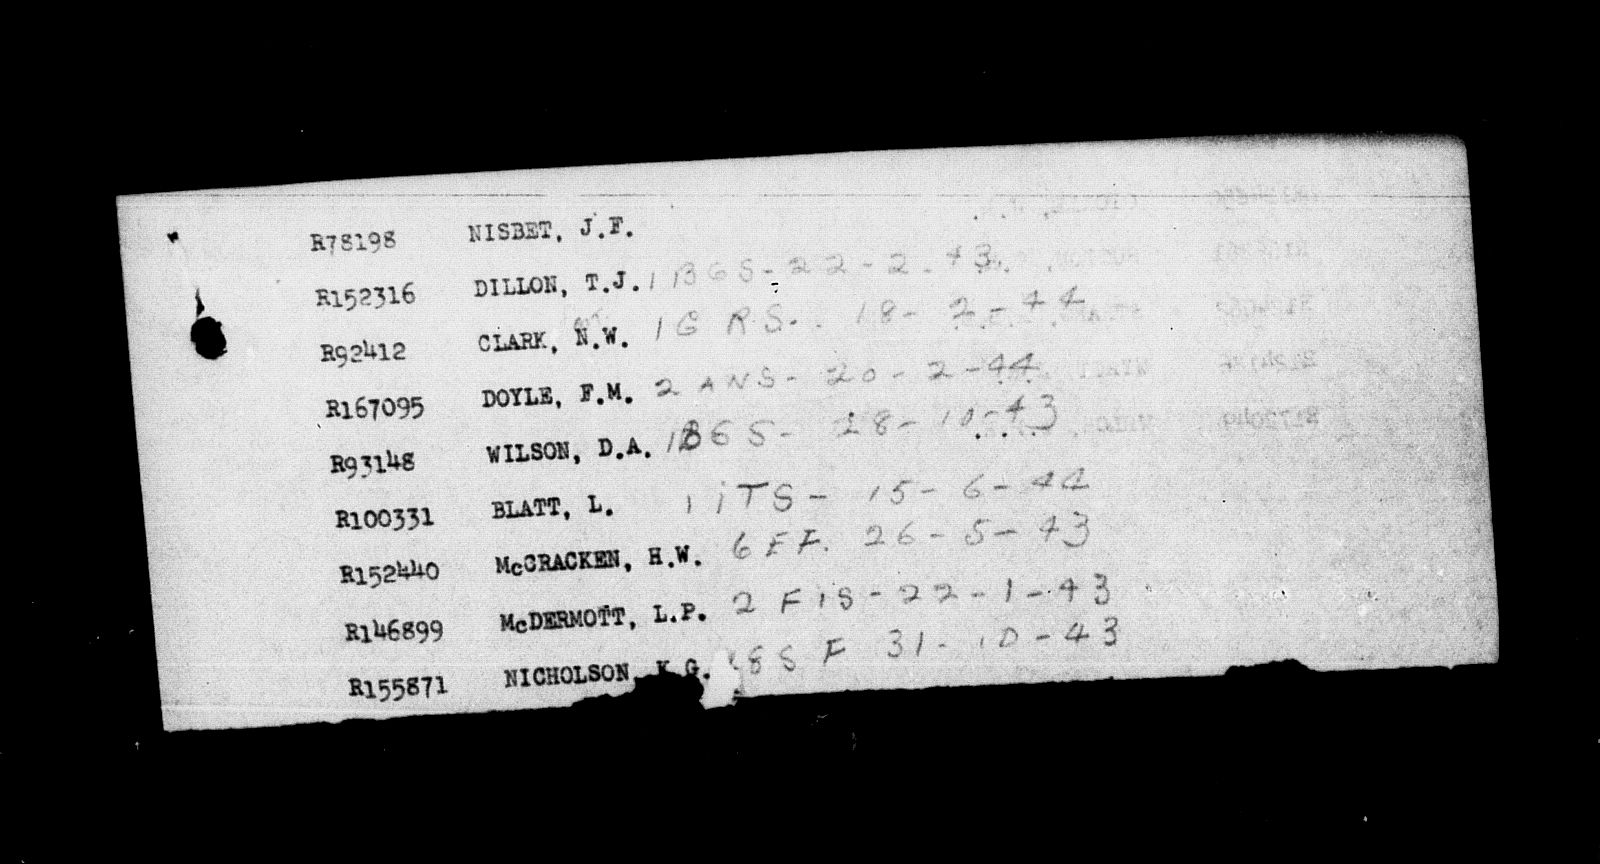 R78198 NISBET, J.F.
R152316 DILLON, T.J. 1 BGS-22-2-43.
R92412 CLARK, N.W. 1G RS. 18-2-44
R167095 DOYLE, F.M. 2 ANS-20-2-44
R93148 WILSON, D.A. 28-10-43
R100331 BLATT, L. 1 ITS-15-6-44
R152440 McCRACKEN, H.W. 26-5-43
R146899 McDERMOTT, L.P. 2 FIS-22-1-43
R155871 NICHOLSON, K.G. 31-10-43